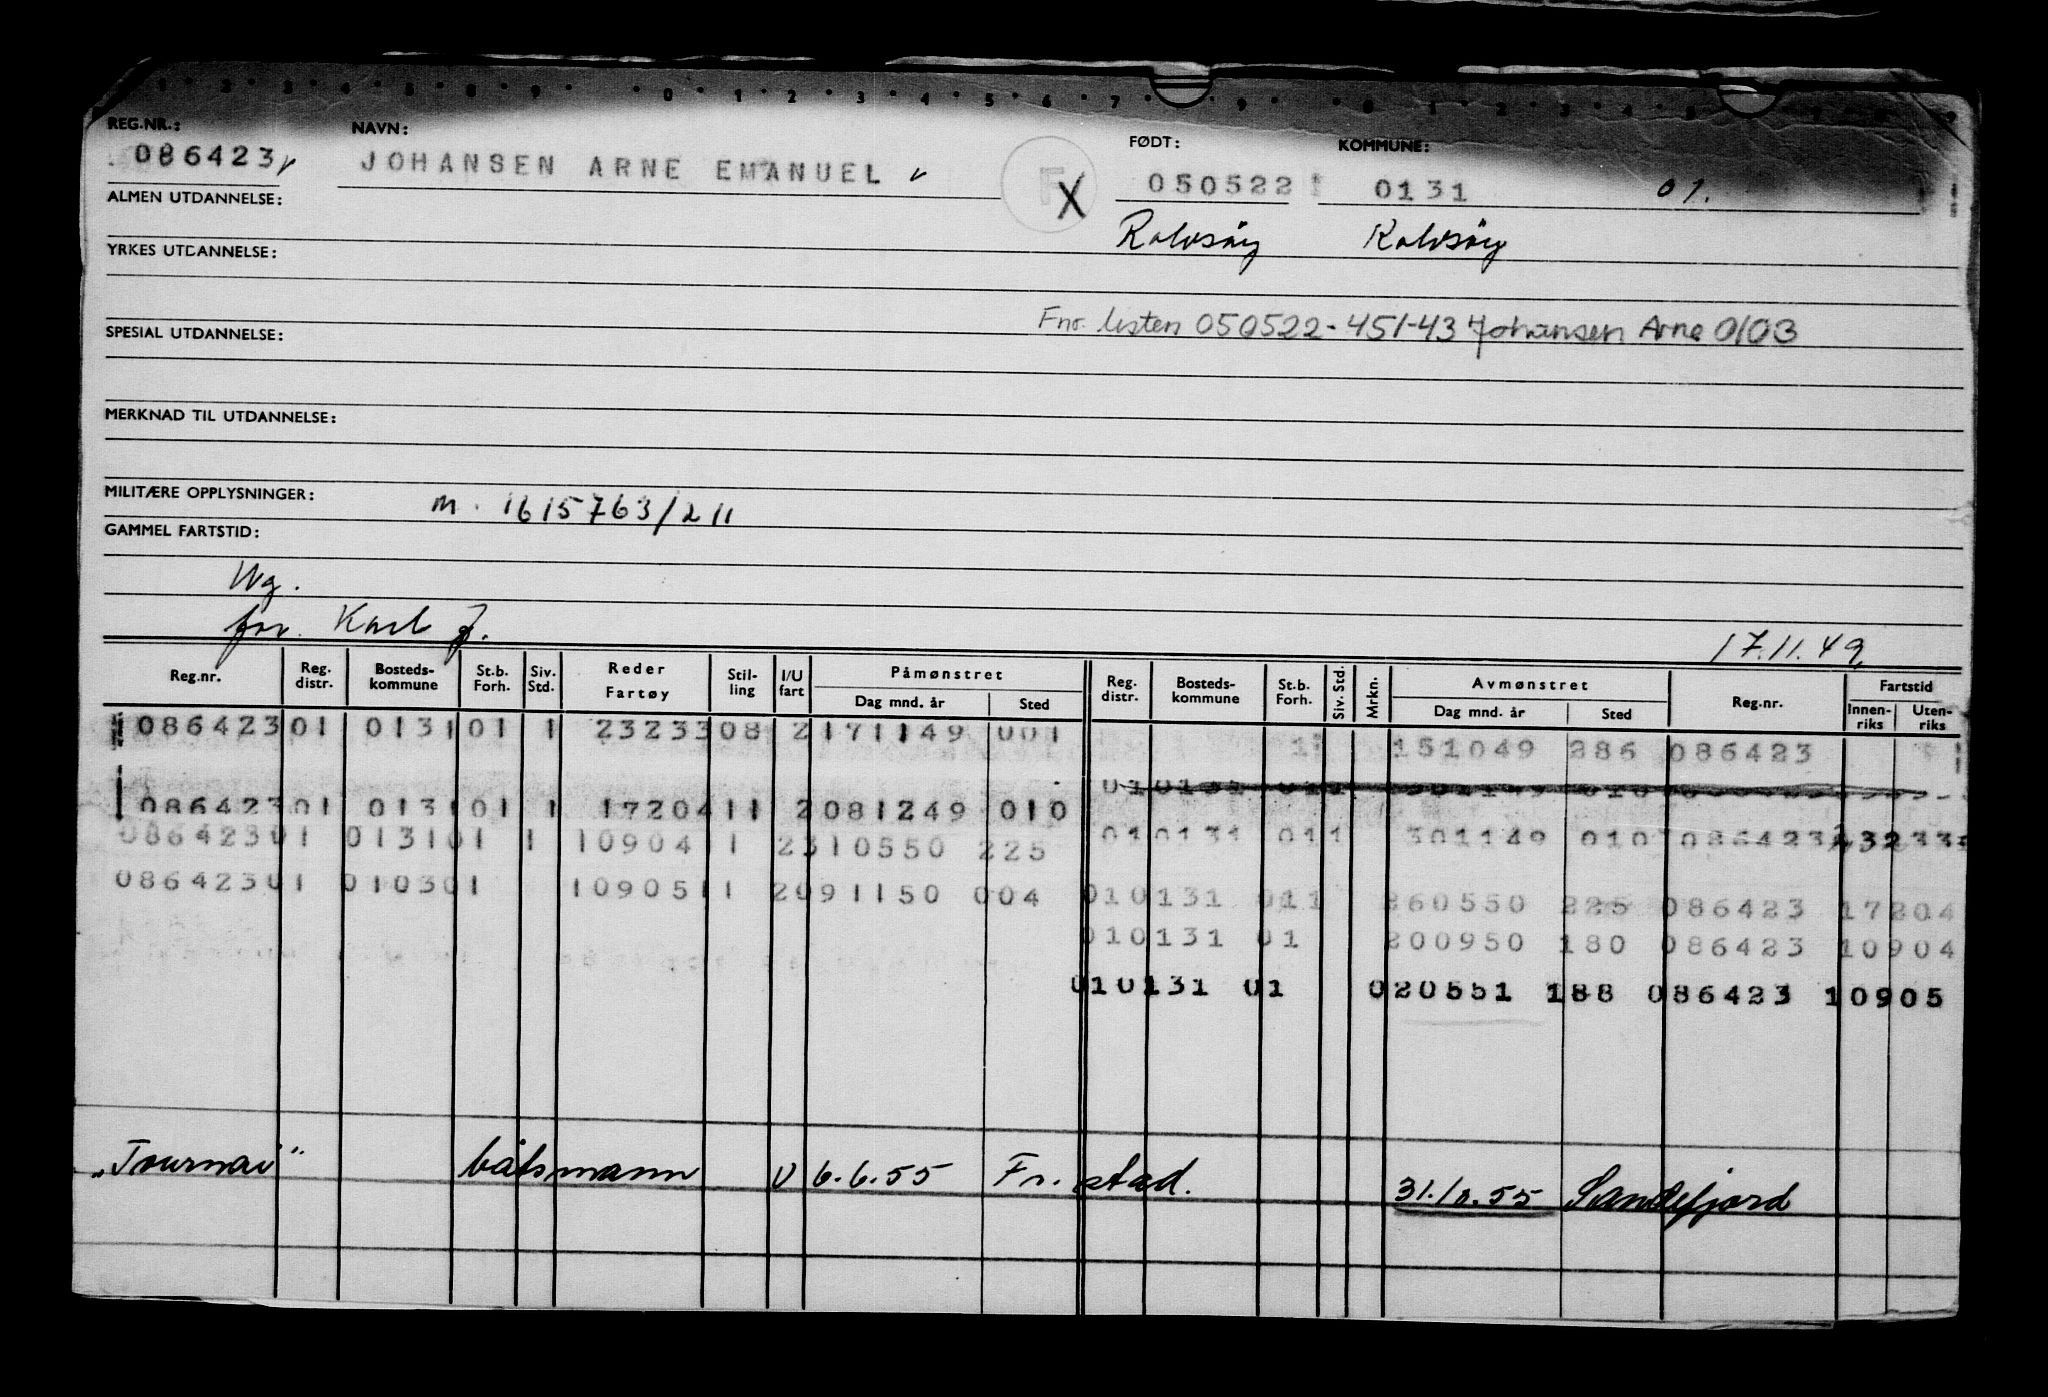 REG.NR.: NAVN: FØDT: KOMMUNE:
086423 JOHANSEN ARNE EMANUEL 050522 0131 01.
ALMEN UTDANNELSE:
Rolvsøy Rolvsøy
YRKES UTDANNELSE:
Fnr. listen 050522-451-43 Johansen Arne 0103
SPESIAL UTDANNELSE:
MERKNAD TIL UTDANNELSE:
MILITÆRE OPPLYSNINGER: m. 1615763/211
GAMMEL FARTSTID:
Ug.
for. Karl J. 17.11.49
Reg.nr. Reg. distr. Bosteds-kommune St.b. Forh. Siv. Std. Reder Fartøy Stil-ling I/U fart Påmønstret Dag mnd. år Sted Reg. distr. Bosteds-kommune St.b. Forh. Siv. Std. Mrkn. Avmønstret Dag mnd. år Sted Reg.nr. Fartstid Innen-riks Uten-riks
086423 01 0131 01 1 23233 08 2 171149 001
1 151049 286 086423
086423 01 0131 01 1 17204 11 2 081249 010
086423 01 0131 01 1 10904 11 2 310550 225 01 0131 01 1 301149 010 086423 23233
086423 01 0103 01 10905 11 2 091150 004 01 0131 01 1 260550 225 086423 17204
01 0131 01 200950 180 086423 10904
01 0131 01 020551 188 086423 10905
"Tournai" båtsmann U 6.6.55 Fr.stad. 31.10.55 Sandefjord